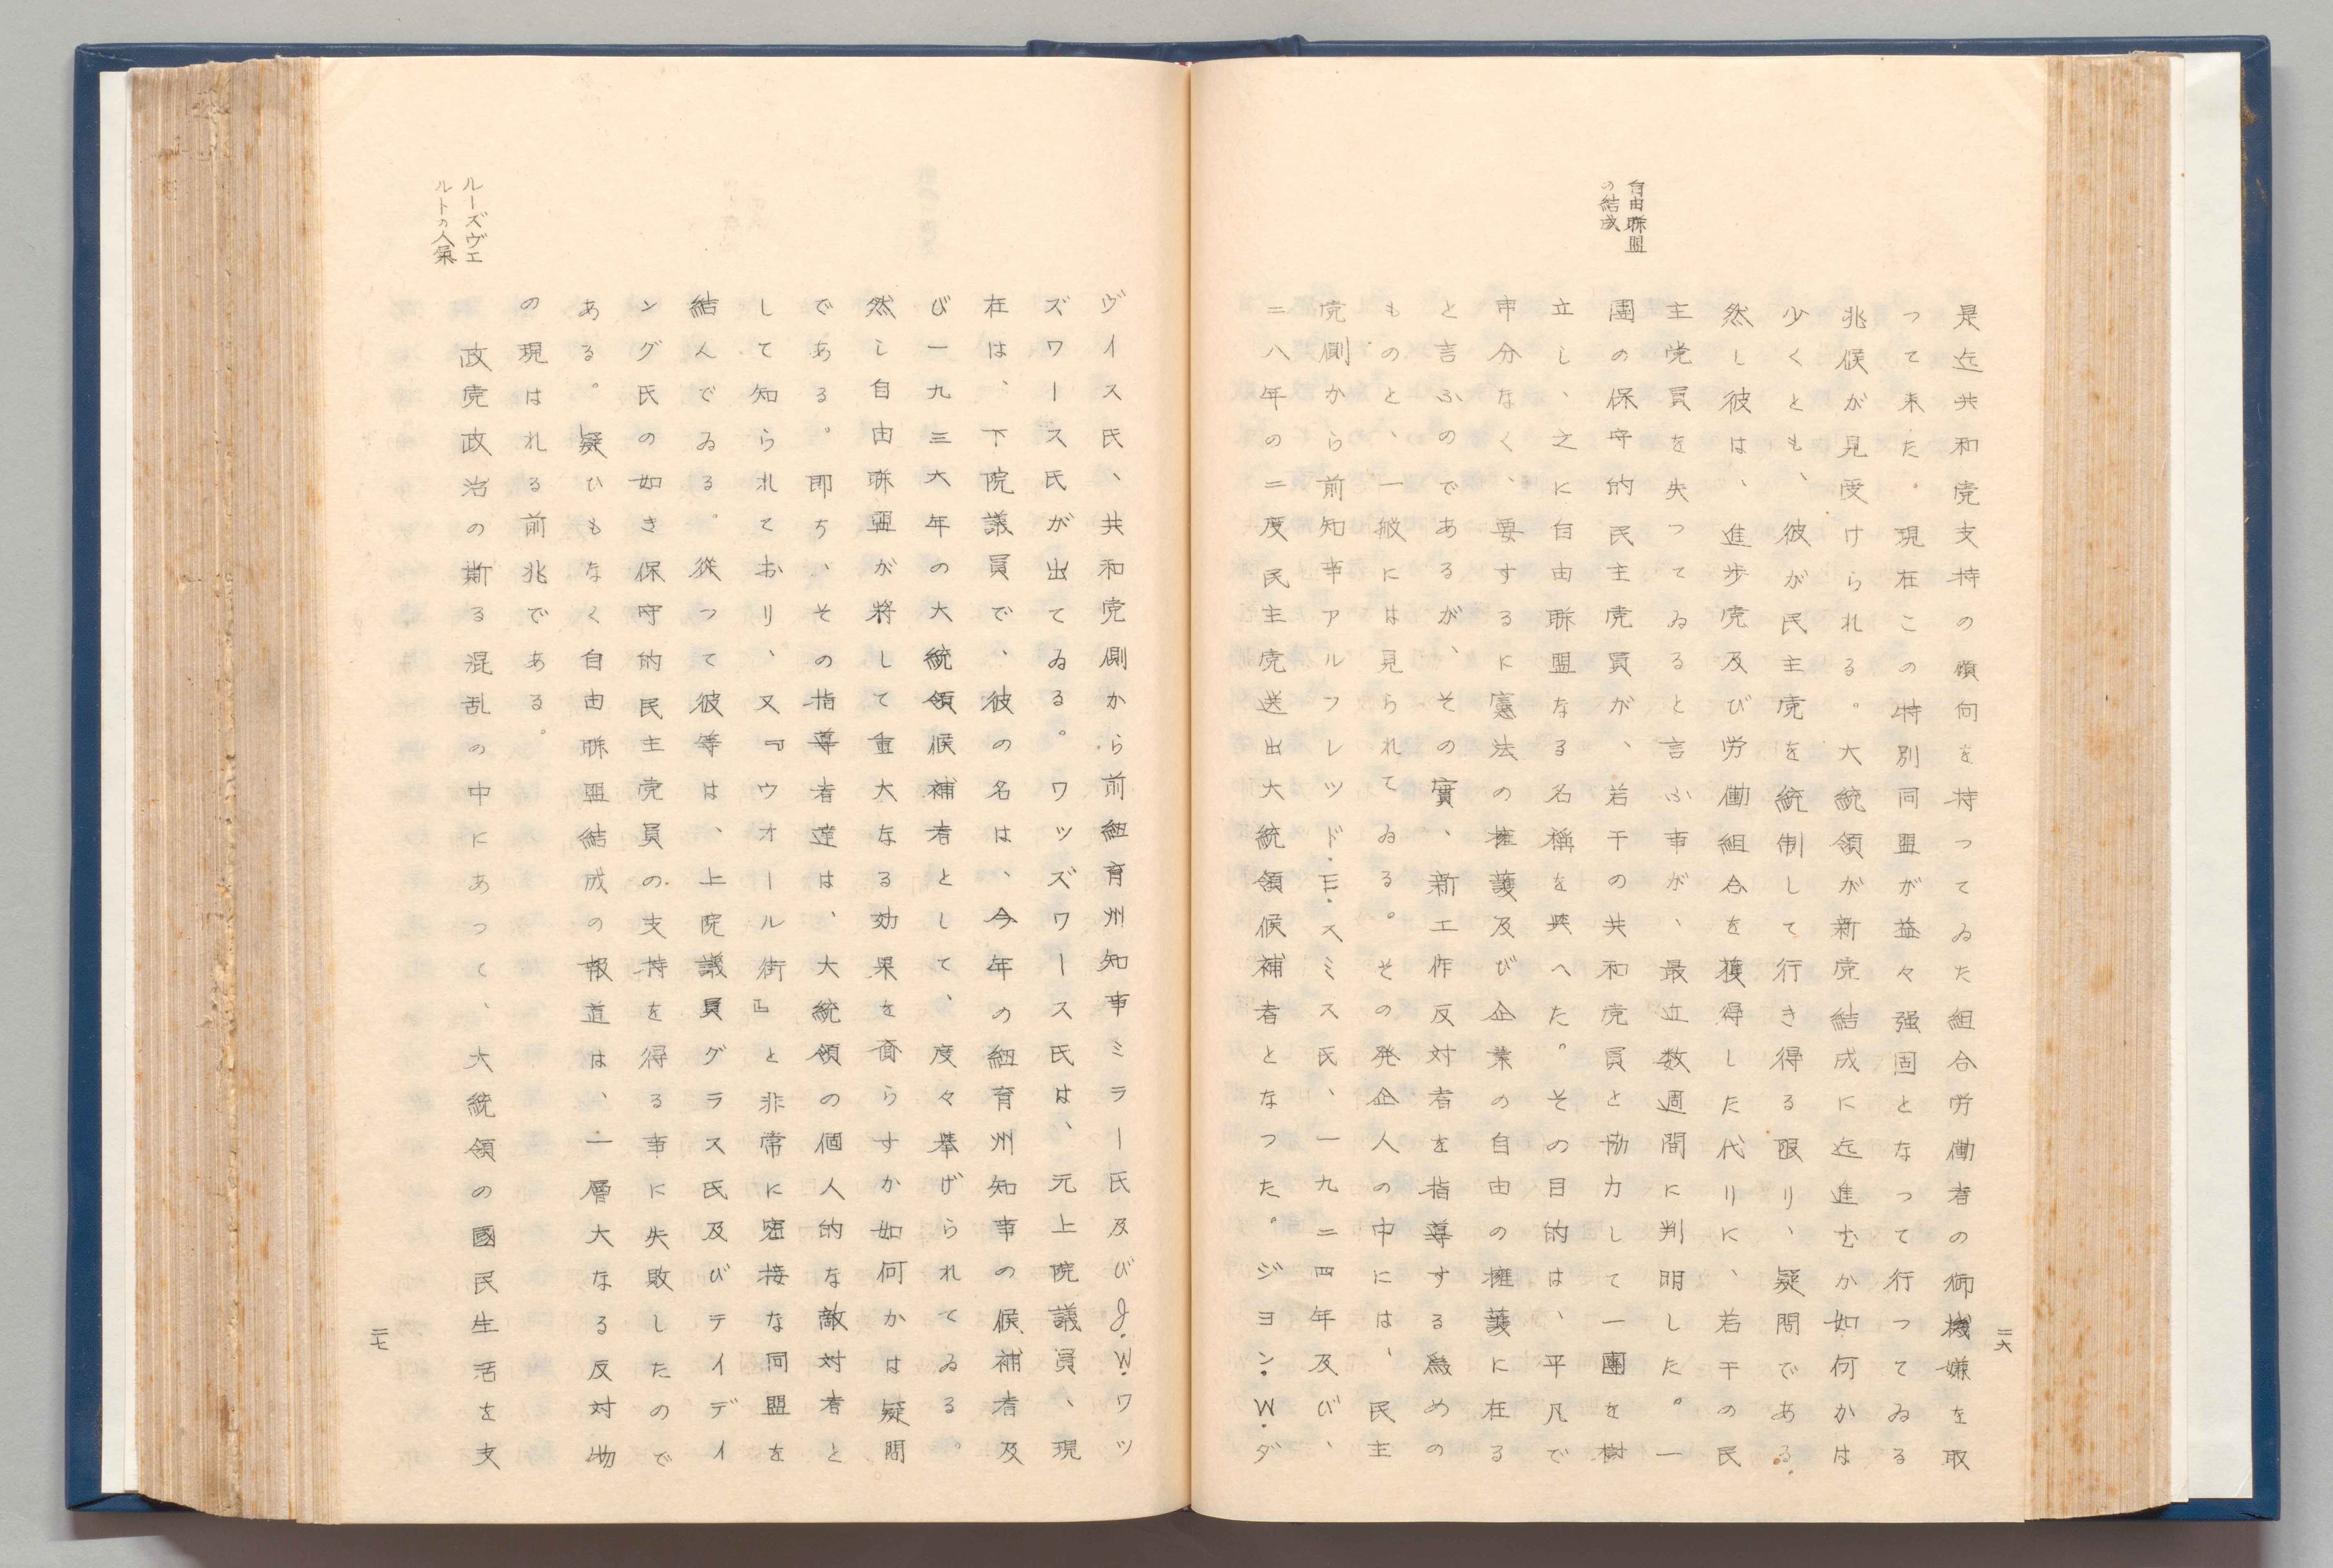 是迄共和党支持の傾向を持つてゐた組合労働者の御機嫌を取
つて来た。現在この特別同盟が益々强固となつて行つてゐる
兆候が見受けられる。大統領が新党結成に迄進むか如何かは
少くとも、彼が民主党を統制して行き得る限り、疑問である。
然し彼は、進步党及び労働組合を獲得した代りに、若干の民
主党員を失つてゐると言ふ事が、最近数週間に判明した。一
自由聯盟
の結成
團の保守的民主党員が、若干の共和党員と協力して一團を樹
立し、之に自由聯盟なる名稱を與へた。その目的は、平凡で
申分なく、要するに憲法の擁護及び企業の自由の擁護に在る
と言ふのであるが、その實、新工作反対者を指導する爲めの
ものと、一般には見られてゐる。その発企人の中には、民主
党側から前知事アルフレッド・E・スミス氏、一九二四年及び、
二八年の二度民主党送出大統領候補者となつた。ジヨン・W・ダ
二六
ヴイス氏、共和党側から前紐育州知事ミラー氏及びJ.W.ワッ
ズワース氏が出てゐる。ワッズワース氏は、元上院議員、現
在は、下院議員で、彼の名は、今年の紐育州知事の候補者及
び一九三六年の大統領候補者として、度々擧げられてゐる。
然し自由聯盟が將して重大なる効果を齎らすか如何かは疑問
である。即ち、その指導者達は、大統領の個人的な敵対者と
して知られており、又『ウオール街』と非常に密接な同盟を
結んでゐる。從つて彼等は、上院議員グラス氏及びテイデイ
ング氏の如き保守的民主党員の支持を得る事に失敗したので
ある。疑ひもなく自由聯盟結成の報道は、一層大なる反対物
の現はれる前兆である。
ルーズヴエ
ルトの人氣
政党政治の斯る混乱の中にあつて、大統領の國民生活を支
二七